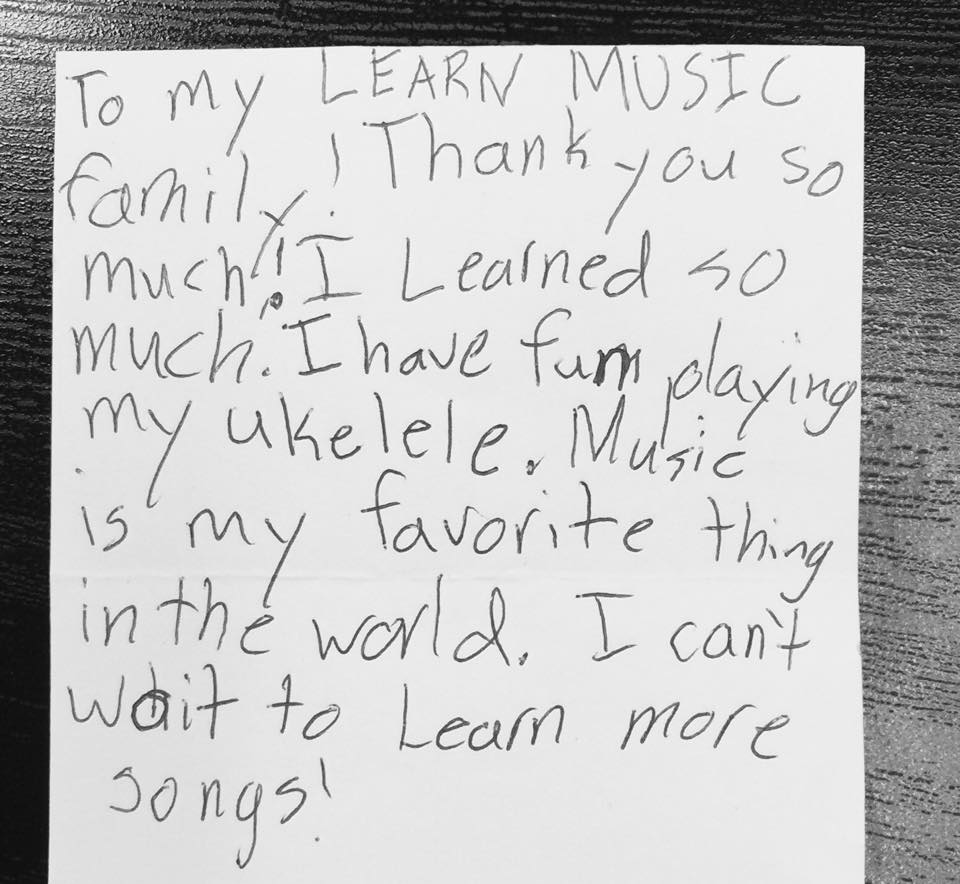 To my LEARN MUSIC
family! Thank you so
much!! I Learned so
much. I have fun playing
my ukelele. Music
is my favorite thing
in the world. I can't
wait to Learn more
songs!